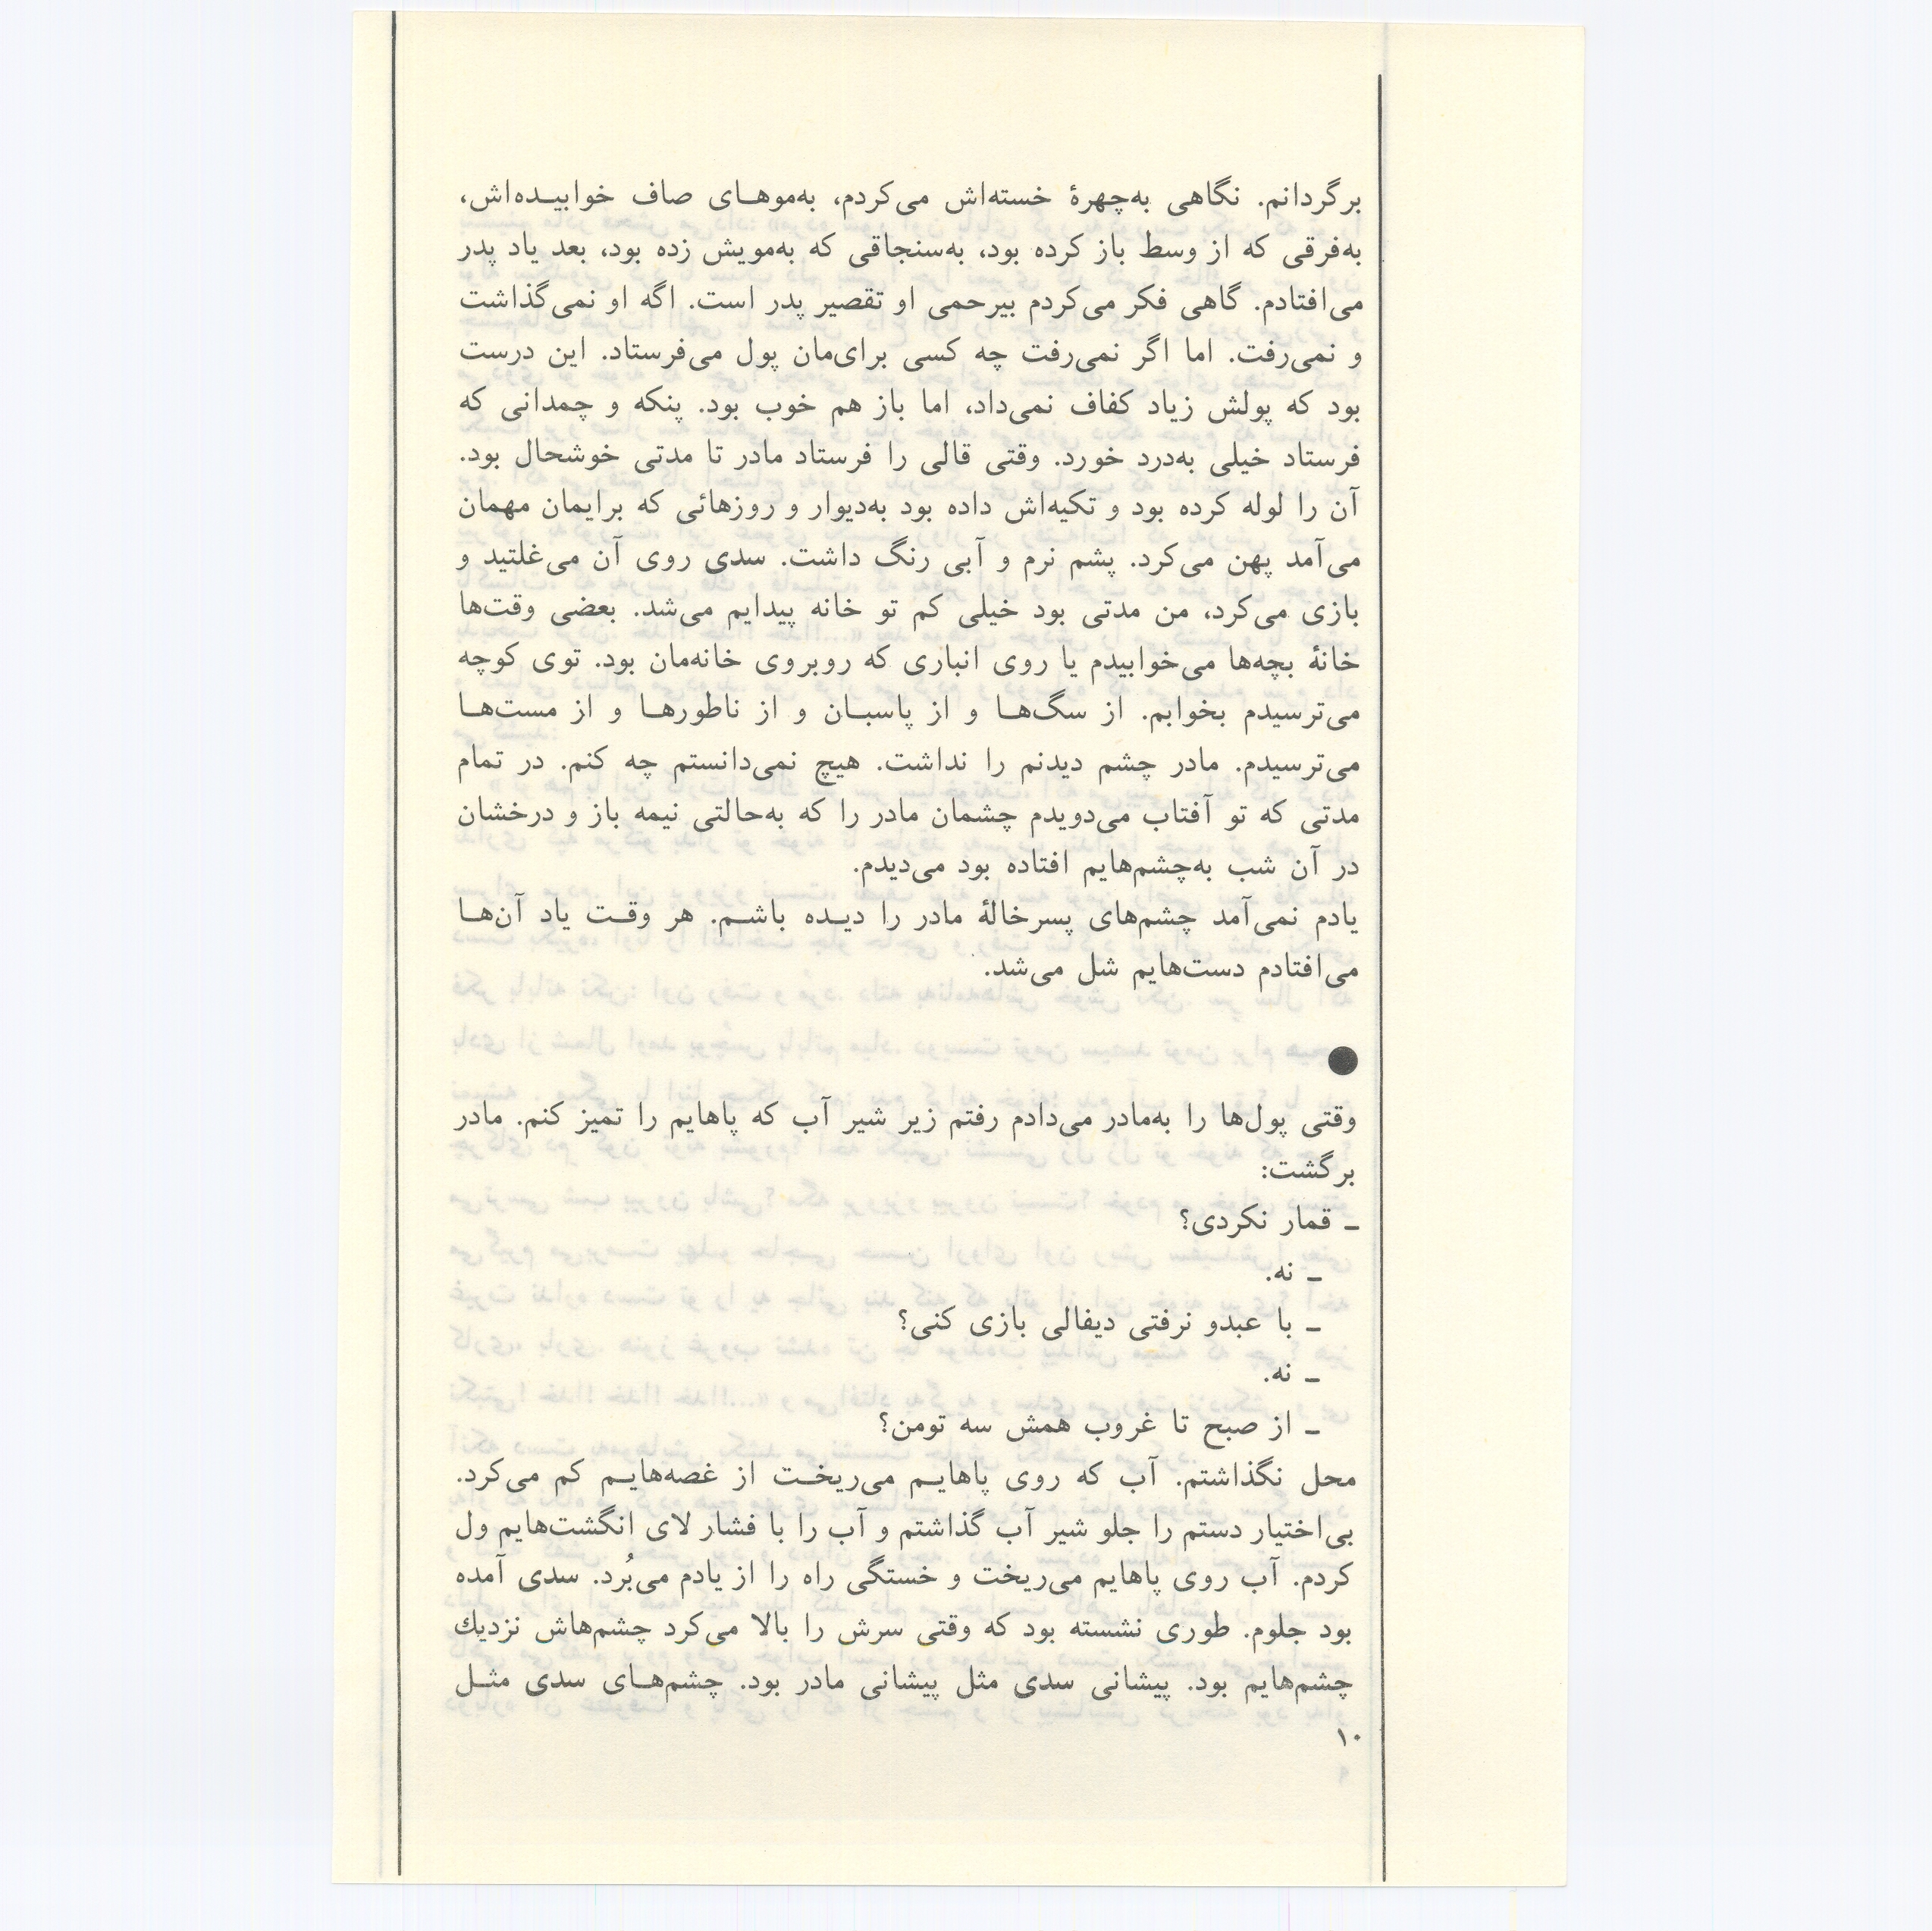 برگردانم. نگاهی به‌چهرهٔ خسته‌اش می‌کردم، به‌موهای صاف خوابیده‌اش،
به‌فرقی که از وسط باز کرده بود، به‌سنجاقی که به‌مویش زده بود، بعد یاد پدر
می‌افتادم. گاهی فکر می‌کردم بیرحمی او تقصیر پدر است. اگه او نمی‌گذاشت
و نمی‌رفت. اما اگر نمی‌رفت چه کسی برای‌مان پول می‌فرستاد. این درست
بود که پولش زیاد کفاف نمی‌داد، اما باز هم خوب بود. پنکه و چمدانی که
فرستاد خیلی به‌درد خورد. وقتی قالی را فرستاد مادر تا مدتی خوشحال بود.
آن را لوله کرده بود و تکیه‌اش داده بود به‌دیوار و روزهائی که برایمان مهمان
می‌آمد پهن می‌کرد. پشم نرم و آبی رنگ داشت. سدی روی آن می‌غلتید و
بازی می‌کرد، من مدتی بود خیلی کم تو خانه پیدایم می‌شد. بعضی وقت‌ها
خانهٔ بچه‌ها می‌خوابیدم یا روی انباری که روبروی خانه‌مان بود. توی کوچه
می‌ترسیدم بخوابم. از سگ‌ها و از پاسبان و از ناطورها و از مست‌ها
می‌ترسیدم. مادر چشم دیدنم را نداشت. هیچ نمی‌دانستم چه کنم. در تمام
مدتی که تو آفتاب می‌دویدم چشمان مادر را که به‌حالتی نیمه باز و درخشان
در آن شب به‌چشم‌هایم افتاده بود می‌دیدم.
یادم نمی‌آمد چشم‌های پسرخالهٔ مادر را دیده باشم. هر وقت یاد آن‌ها
می‌افتادم دست‌هایم شل می‌شد.
●
وقتی پول‌ها را به‌مادر می‌دادم رفتم زیر شیر آب که پاهایم را تمیز کنم. مادر
برگشت:
ـ قمار نکردی؟
ـ نه.
ـ با عبدو نرفتی دیفالی بازی کنی؟
ـ نه.
ـ از صبح تا غروب همش سه تومن؟
محل نگذاشتم. آب که روی پاهایم می‌ریخت از غصه‌هایم کم می‌کرد.
بی‌اختیار دستم را جلو شیر آب گذاشتم و آب را با فشار لای انگشت‌هایم ول
کردم. آب روی پاهایم می‌ریخت و خستگی راه را از یادم می‌بُرد. سدی آمده
بود جلوم. طوری نشسته بود که وقتی سرش را بالا می‌کرد چشم‌هاش نزدیك
چشم‌هایم بود. پیشانی سدی مثل پیشانی مادر بود. چشم‌های سدی مثل
۱۰